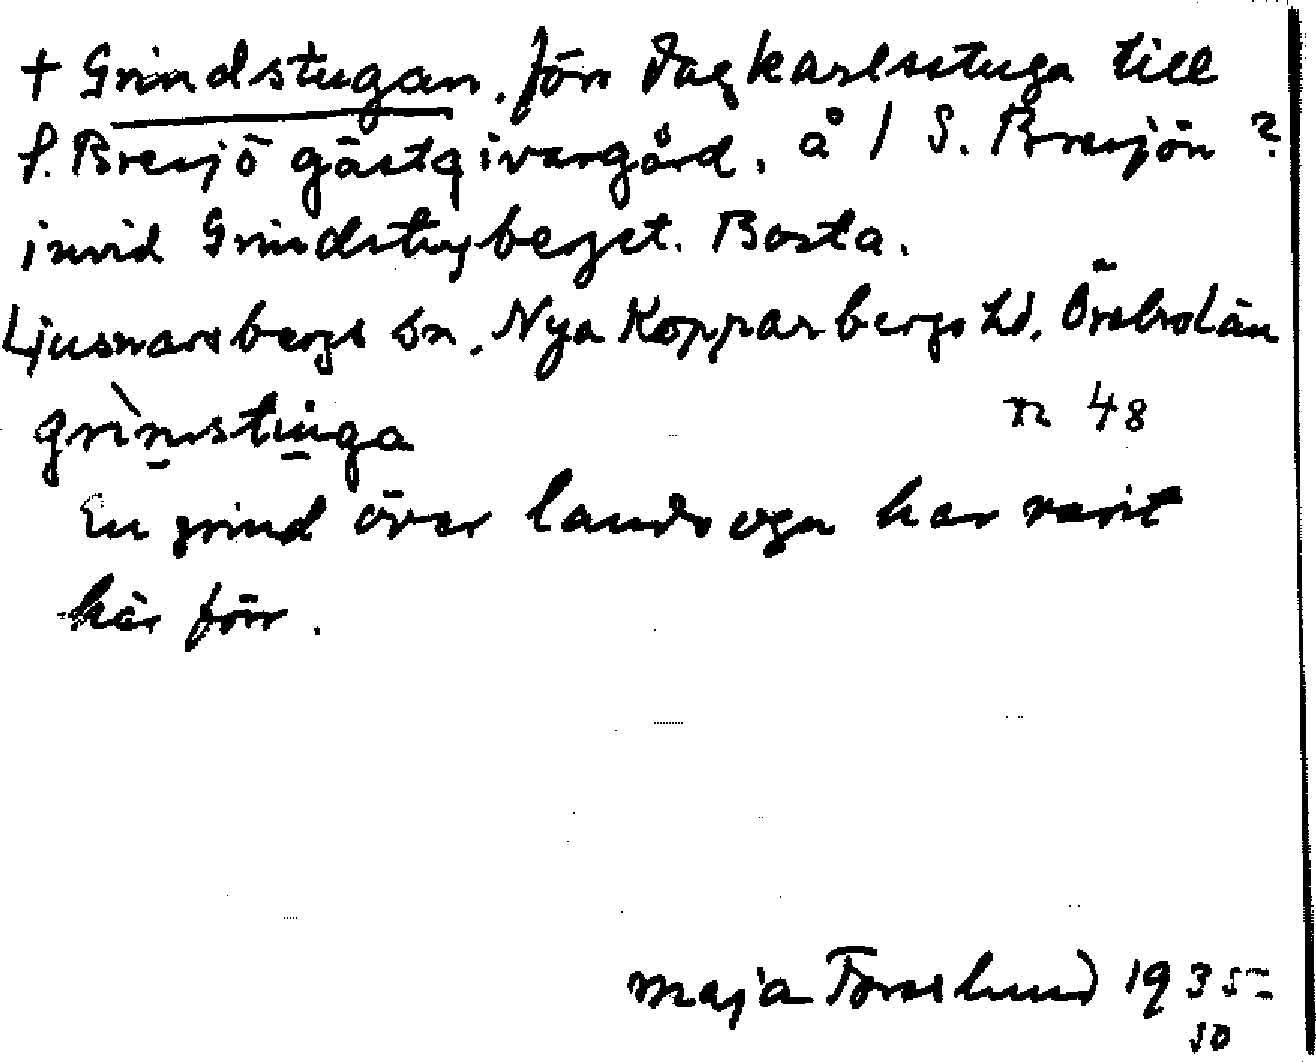 + Grindstugan, förr dagkarlsstuga till
S. Bresjö gästgivargård, å 1 S. Bresjön ?
invid Grindstugberget. Borta.
Ljusnarsbergs sn, Nya Kopparbergs hd, Örebro län
grìn̠stu̠ga
n 48
En grind över landsvägen har varit
här förr.
Maja Forslund 1935
50